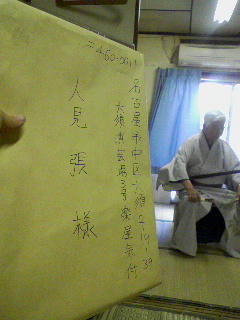 〒460-0011
名古屋市中区大須2-19-39
大須演芸場3号楽屋気付
人見 張 様